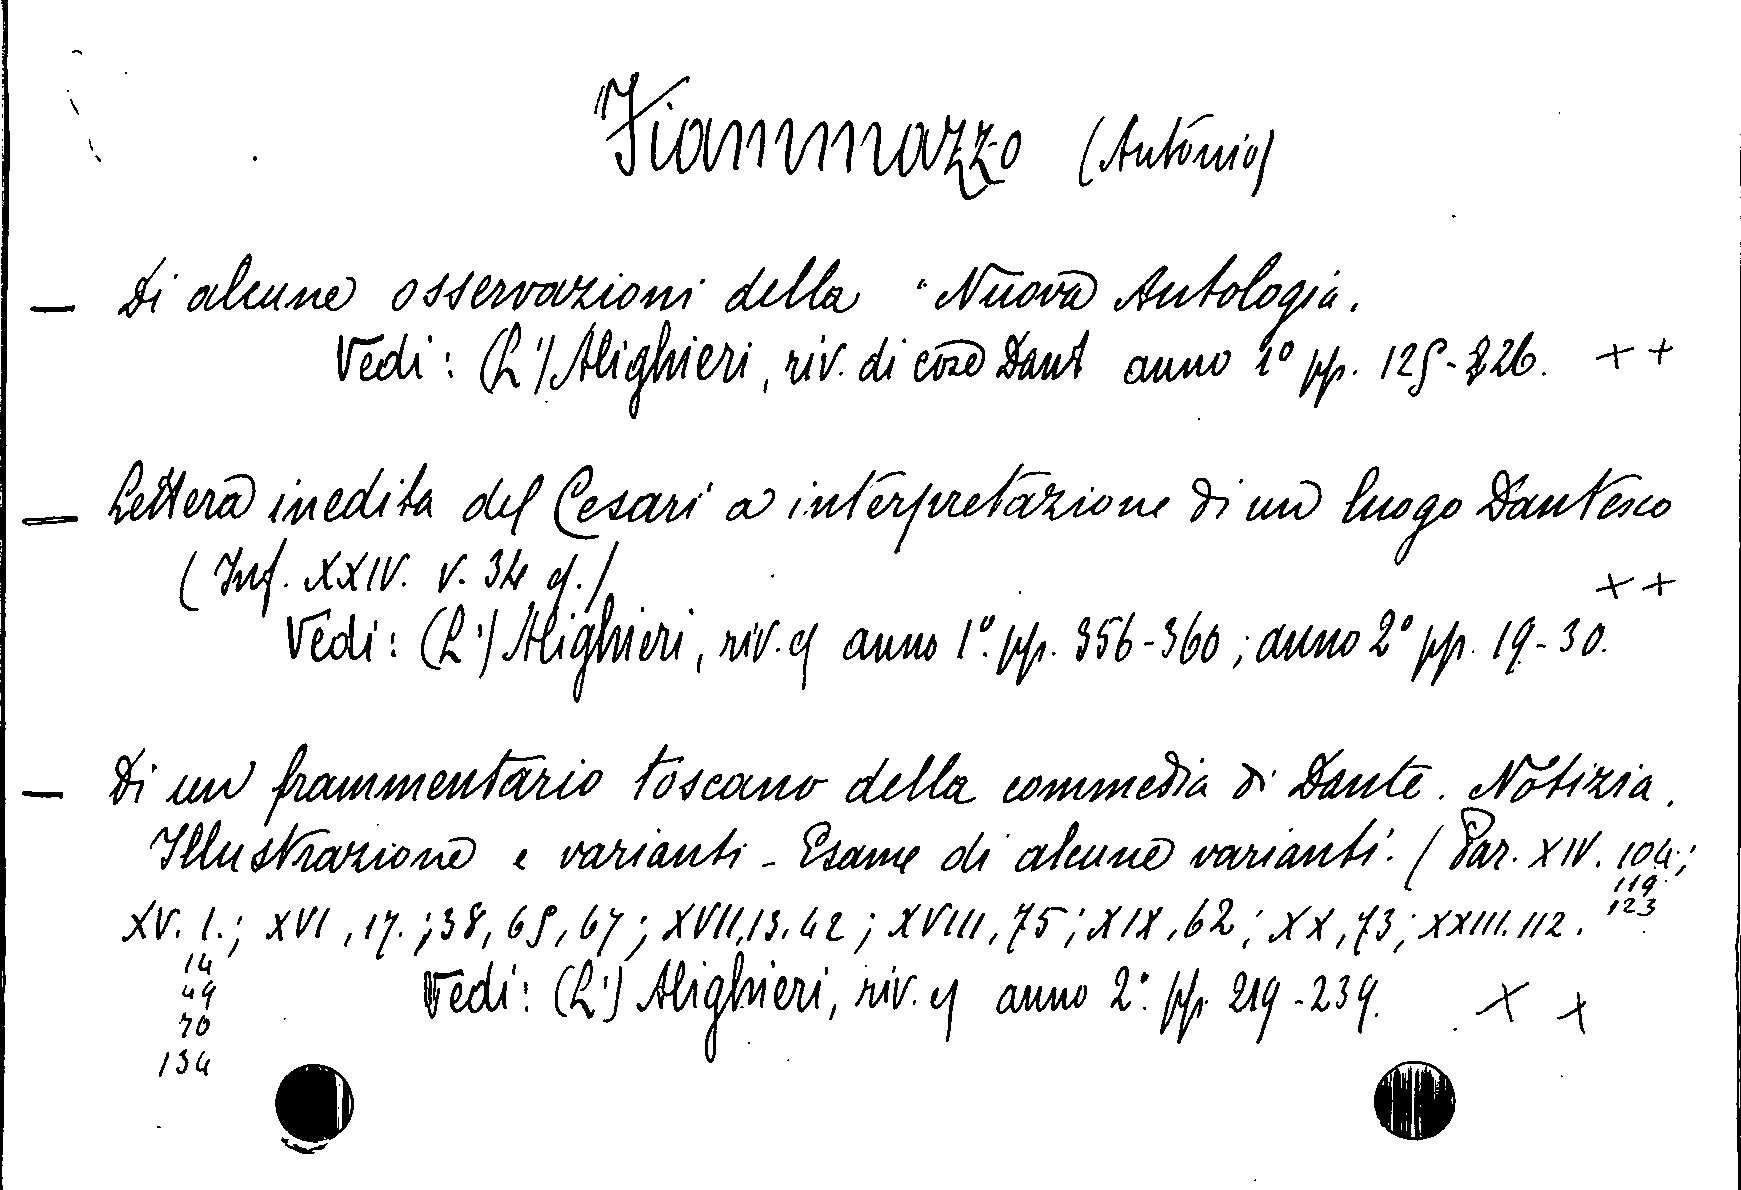 Fiammazzo (Antonio)
— Di alcune osservazioni della "Nuova Antologia.
Vedi: (L') Alighieri, riv. di cose Dant anno 1º pp. 125-226. ++
— Lettera inedita del Cesari a interpretazione di un luogo Dantesco
(Inf. XXIV. v. 34 g.)
++
Vedi: (L') Alighieri, riv. g anno 1º. pp. 356-360; anno 2º pp. 19-30.
— Di un frammentario toscano della commedia di Dante. Notizia.
Illustrazione e varianti - Esame di alcune varianti. (Par. XIV. 104;
119
123
XV. 1.; XVI, 17.; 38, 69, 67; XVII, 13. 42; XVIII, 75; XIX, 62; XX, 73; XXIII. 112.
14
49
70
134
Vedi: (L') Alighieri, riv. g anno 2º. pp. 219-239. ++